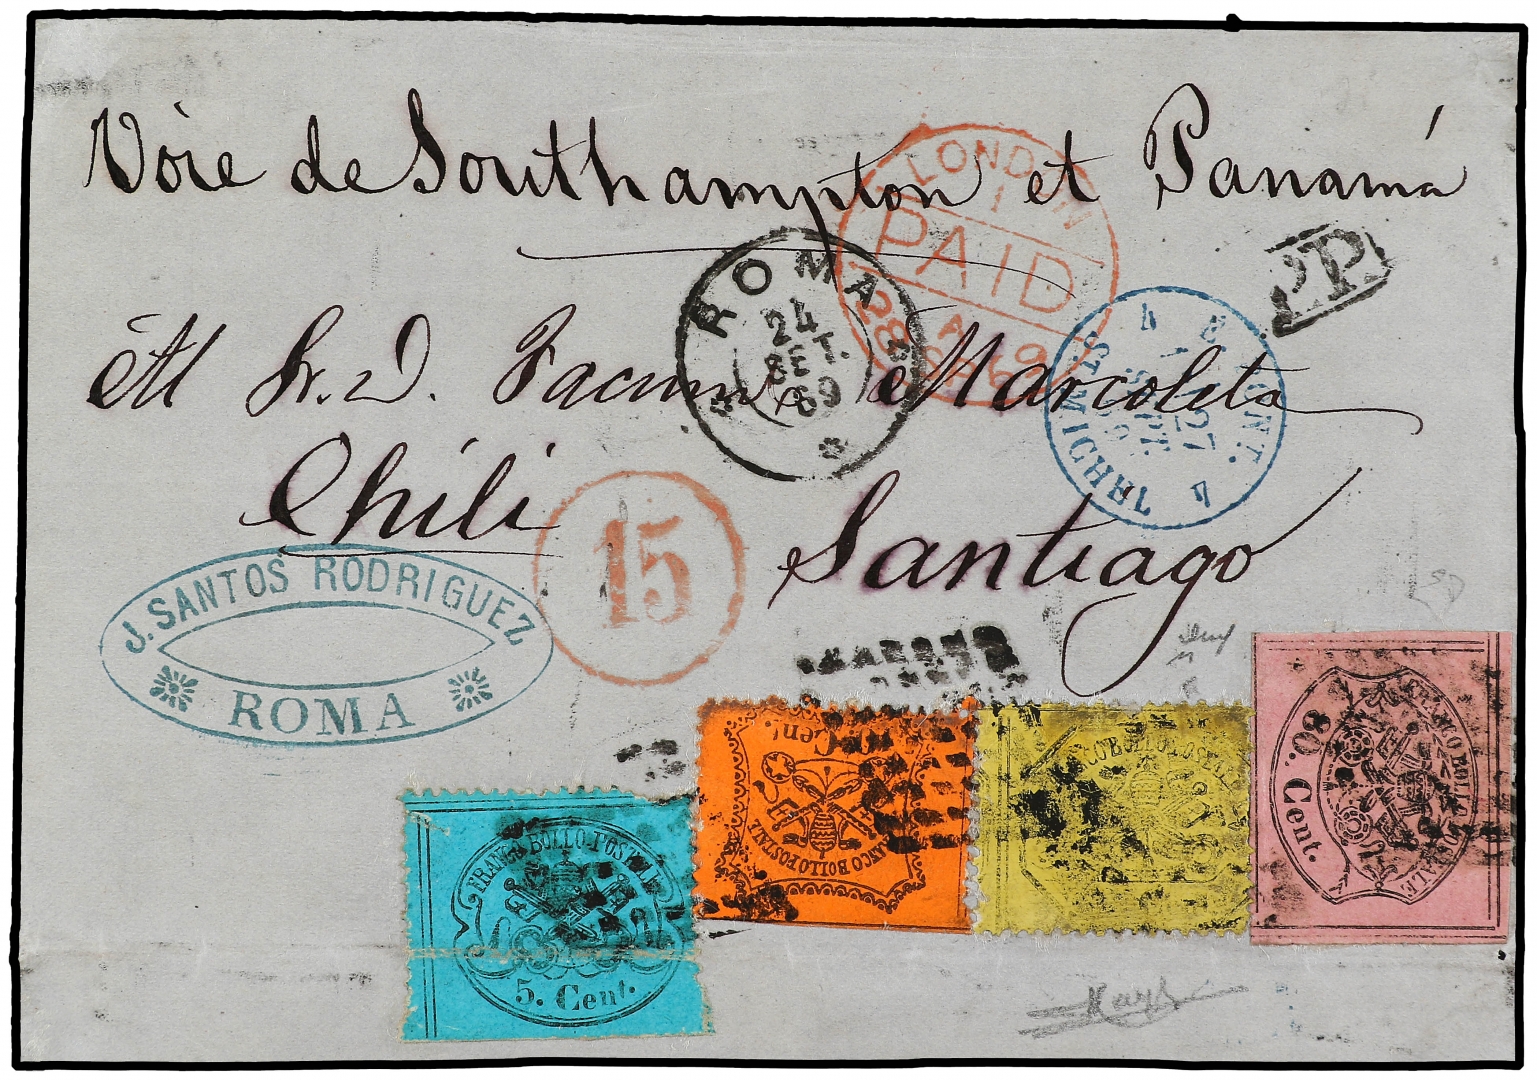 Voie de Southampton et Panamá
LONDON
1
PAID
28 SP 69
P.P.
ROMA
24
SET.
69
Al Sr. D. Facundo Marcoleta
E. PONT.
4
27
SEPT.
69
ST MICHEL
4
Chili
Santiago
15
J. SANTOS RODRIGUEZ
ROMA
FRANCO BOLLO POSTALE
5. Cent.
FRANCO BOLLO POSTALE
10 Cent.
CO BOLLO POSTALE
FRANCO BOLLO POSTALE
80. Cent.